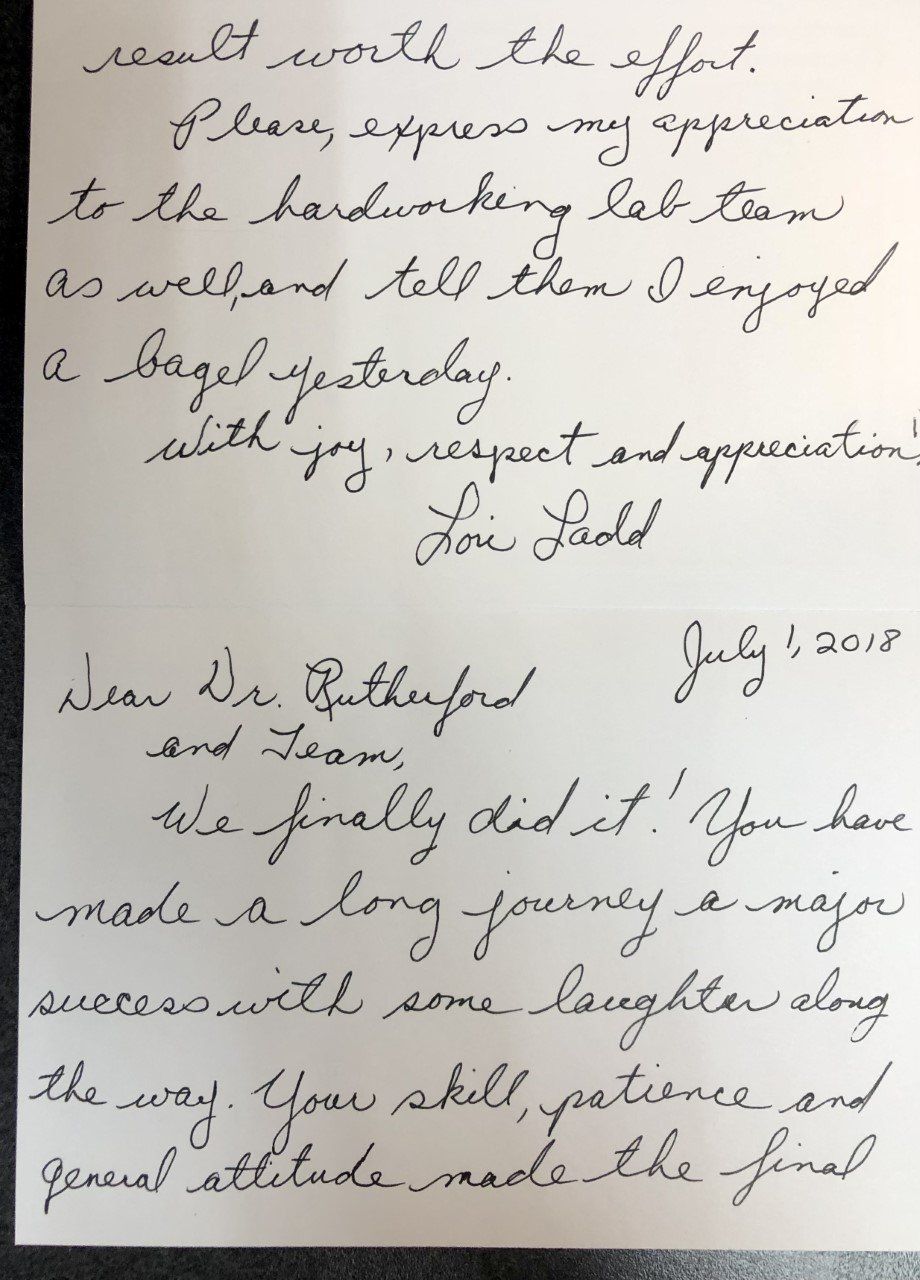 result worth the effort.
Please, express my appreciation
to the hardworking lab team
as well, and tell them I enjoyed
a bagel yesterday.
With joy, respect and appreciation!
Lori Ladd
July 1, 2018
Dear Dr. Rutherford
and Team,
We finally did it! You have
made a long journey a major
success with some laughter along
the way. Your skill, patience and
general attitude made the final